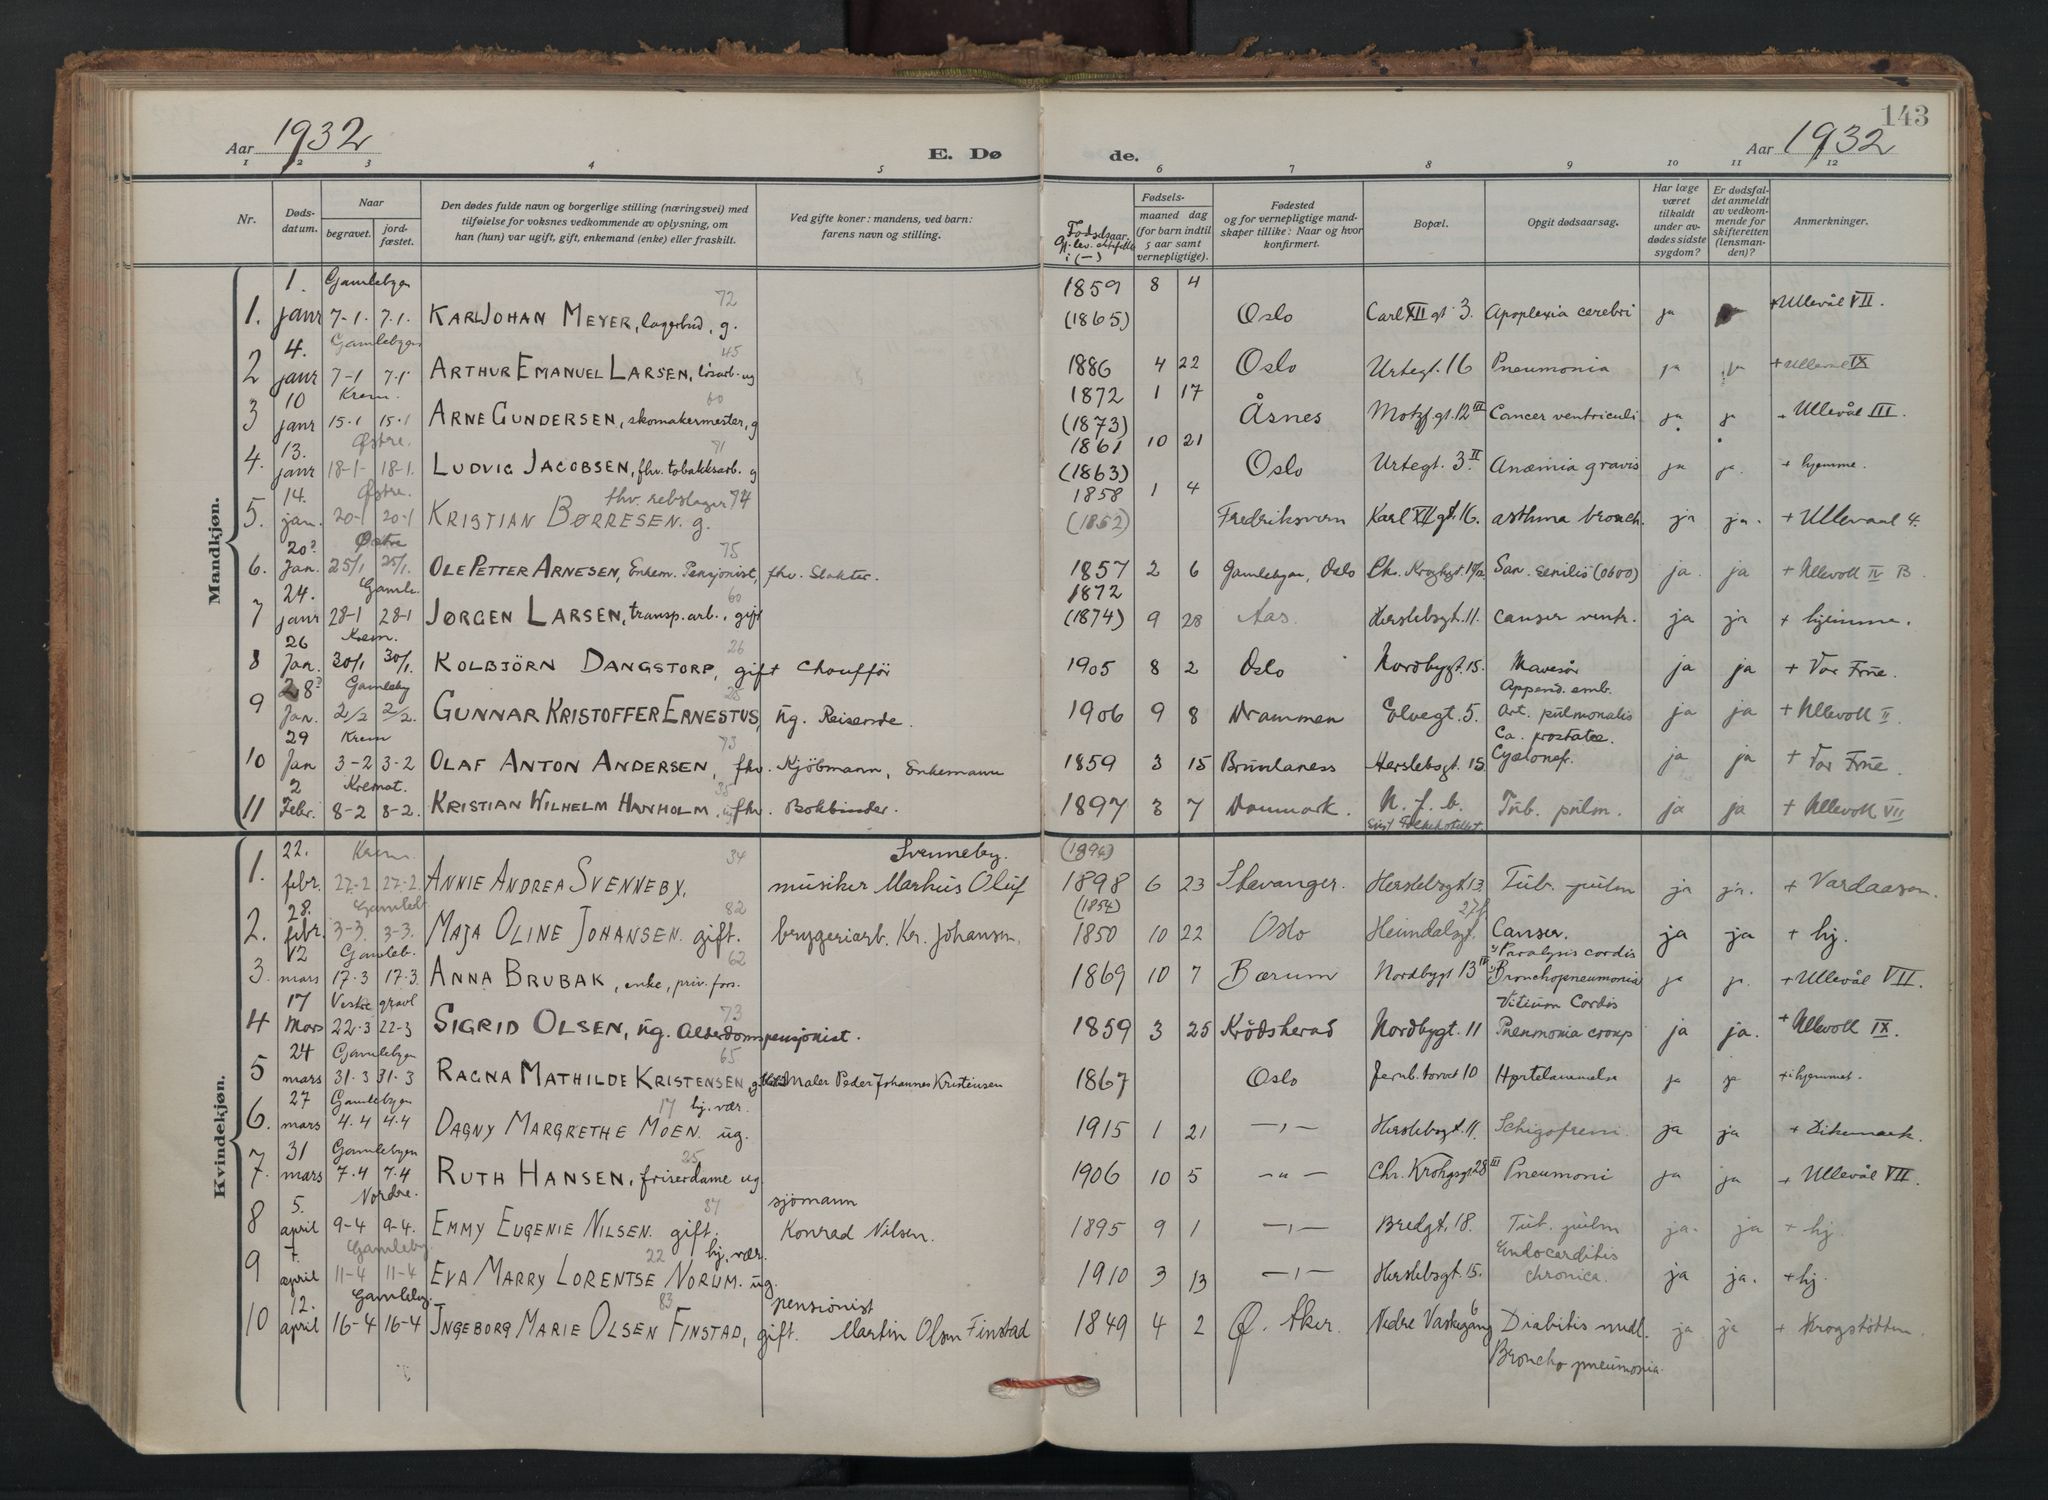 143
Aar 1932
E. Døde.
Aar 1932
1 2 3 4 5 6 7 8 9 10 11 12
Nr.
Døds-datum.
Naar
begravet.
jord-fæstet.
Den dødes fulde navn og borgerlige stilling (næringsvei) med
tilføielse for voksnes vedkommende av oplysning, om
han (hun) var ugift, gift, enkemand (enke) eller fraskilt.
Ved gifte koner: mandens, ved barn:
farens navn og stilling.
Fødselsaar.
Gj.lev. ektefelle
i (—)
Fødsels-
maaned dag
(for barn indtil
5 aar samt
vernepligtige).
Fødested
og for vernepligtige mand-
skaper tillike: Naar og hvor
konfirmert.
Bopæl.
Opgit dødsaarsag.
Har læge
været
tilkaldt
under av-
dødes sidste
sygdom?
Er dødsfal-
det anmeldt
av vedkom-
mende for
skifteretten
(lensman-
den)?
Anmerkninger.
Mandkjøn.
1. Gamlebyen 72 1859 8 4
1. janr 7-1. 7.1. KARL JOHAN MEYER, lagerbud, g. (1865) Oslo Carl XII gt 3. Apoplexia cerebri ja + Ullevål VII.
4. Gamlebyen 45
2 janr 7-1 7.1 ARTHUR EMANUEL LARSEN, løsarb. ug 1886 4 22 Oslo Urtegt. 16 Pneumonia ja ja + Ullevål IX
10 Krem. 60 1872 1 17
3 janr 15.1 15.1 ARNE GUNDERSEN, skomakermester, g (1873) Åsnes Motzf.gt. 12 III Cancer ventriculi ja ja + Ullevål III.
13. Østre. 71 1861 10 21
4. janr 18-1- 18-1. LUDVIG JACOBSEN, fhv. tobakksarb. g (1863) Oslo Urtegt. 3. II Anæmia gravis ja ja. + hjemme.
14. Østre. fhv. rebslager 74 1858 1 4
5. jan. 20-1 20-1 KRISTIAN BØRRESEN. g. (1852) Fredriksvern Karl XII gt. 16. asthma bronch. ja ja. + Ullevaal 4.
20? Østre 75
6. Jan. 25/1 25/1. OLE PETTER ARNESEN, Enkem. Pensjonist, fhv. Slakter. 1857 2 6 Gamlebyen, Oslo Chr. Kroghgt. San. senilis (0600) ja. ja + Ullevoll IV B.
24. Gamle. 60 1872
7 janr 28-1 28-1 JØRGEN LARSEN, transp.arb., gift (1874) 9 28 Aas. Herslebsgt. 11. canser ventr. ja ja + hjemme.
26 Krem. 26
8 Jan. 30/1 30/1. KOLBJÖRN DANGSTORP, gift Chouffør 1905 8 2 Oslo Nordbygt. 15. Mavesår ja ja + Vor Frue.
28? Gamleby 25 Append. emb.
9 Jan. 2/2 2/2. GUNNAR KRISTOFFER ERNESTUS, ug. Reisende. 1906 9 8 Drammen Elvegt. 5. Art. pulmonalis ja ja + Ullevoll II.
29 Krem 73 Ca. prostatae.
10 Jan 3-2 3-2 OLAF ANTON ANDERSEN, fhv. Kjöbmann, Enkemann 1859 3 15 Brunlaness Herslebsgt. 15 ja ja + Vor Frue.
2 Kremat. 35
11 Febr. 8-2 8-2. KRISTIAN WILHELM HANHOLM. fhv. Bokbinder. 1897 3 7 Danmark. N. f. b. Tub. pulm. ja ja + Ullevoll VII
sist Folkehotellet.
Kvindekjøn.
22. Krem. 34 Svenneby. (1894)
1. febr. 27-2 27-2. ANNIE ANDREA SVENNEBY. musiker Markus Oluf 1898 6 23 Stavanger. Herslebsgt. 13. Tub. pulm ja ja. + Vardaasen.
28. Gamleb. 82 (1854)
2. febr. 3-3. 3-3. MAJA OLINE JOHANSEN. gift. bryggeriarb. Kr. Johansen. 1850 10 22 Oslo Heimdalsgt. Canser. ja ja + hj.
12 Gamleb. 62 Paralysis cordis
3. mars 17.3 17.3. ANNA BRUBAK, enke, priv. fors. 1869 10 7 Bærum Nordbygt 13 IV Bronchopneumonia ja ja. + Ullevål VII.
17 Vestre gravl 73 Vitium Cordis
4 Mars 22.3 22-3 SIGRID OLSEN, ug. Alderdomspensjonist. 1859 3 25 Krödsherad Nordbygt. 11 Pneumonia croup ja ja. + Ullevoll IX.
24 Gamlebyen 65
5 mars 31.3 31.3 RAGNA MATHILDE KRISTENSEN Maler Peder Johannes Kristensen 1867 Oslo Jernb.torvet 10 Hjertelammelse ja ja + i hjemmet.
27 Gamlebyen 17 hj. vær.
6. mars 4.4 4.4 DAGNY MARGRETHE MOEN. ug. 1915 1 21 —〃— Herslebsgt. 11. Schizofreni. ja ja + Dikemark.
31 Gamlebyen 25
7. mars 7.4 7.4 RUTH HANSEN, friserdame ug 1906 10 5 —〃— Chr. Krohgsgt 28 III Pneumoni ja ja + Ullevål VII.
5. Nordre. 37 sjömann
8 april 9-4 9-4. EMMY EUGENIE NILSEN. gift. Konrad Nilsen. 1895 9 1 —〃— Bredgt. 18. Tub. pulm ja. ja + hj.
7. Gamleby. 22 hj. vær. Endocarditis
9 april 11-4 11-4 EVA MARRY LORENTSE NORUM. ug. 1910 3 13 —〃— Herslebsgt. 15. chronica. ja ja. + hj.
12. Gamleby. 83 pensionist
10 april 16-4 16-4 INGEBORG MARIE OLSEN FINSTAD, gift. Martin Olsen Finstad 1849 4 2 Ø. Aker. Nedre Vaskegång 6 Diabitis mell. ja ja + Krogstøtten.
Broncho pneumonia.